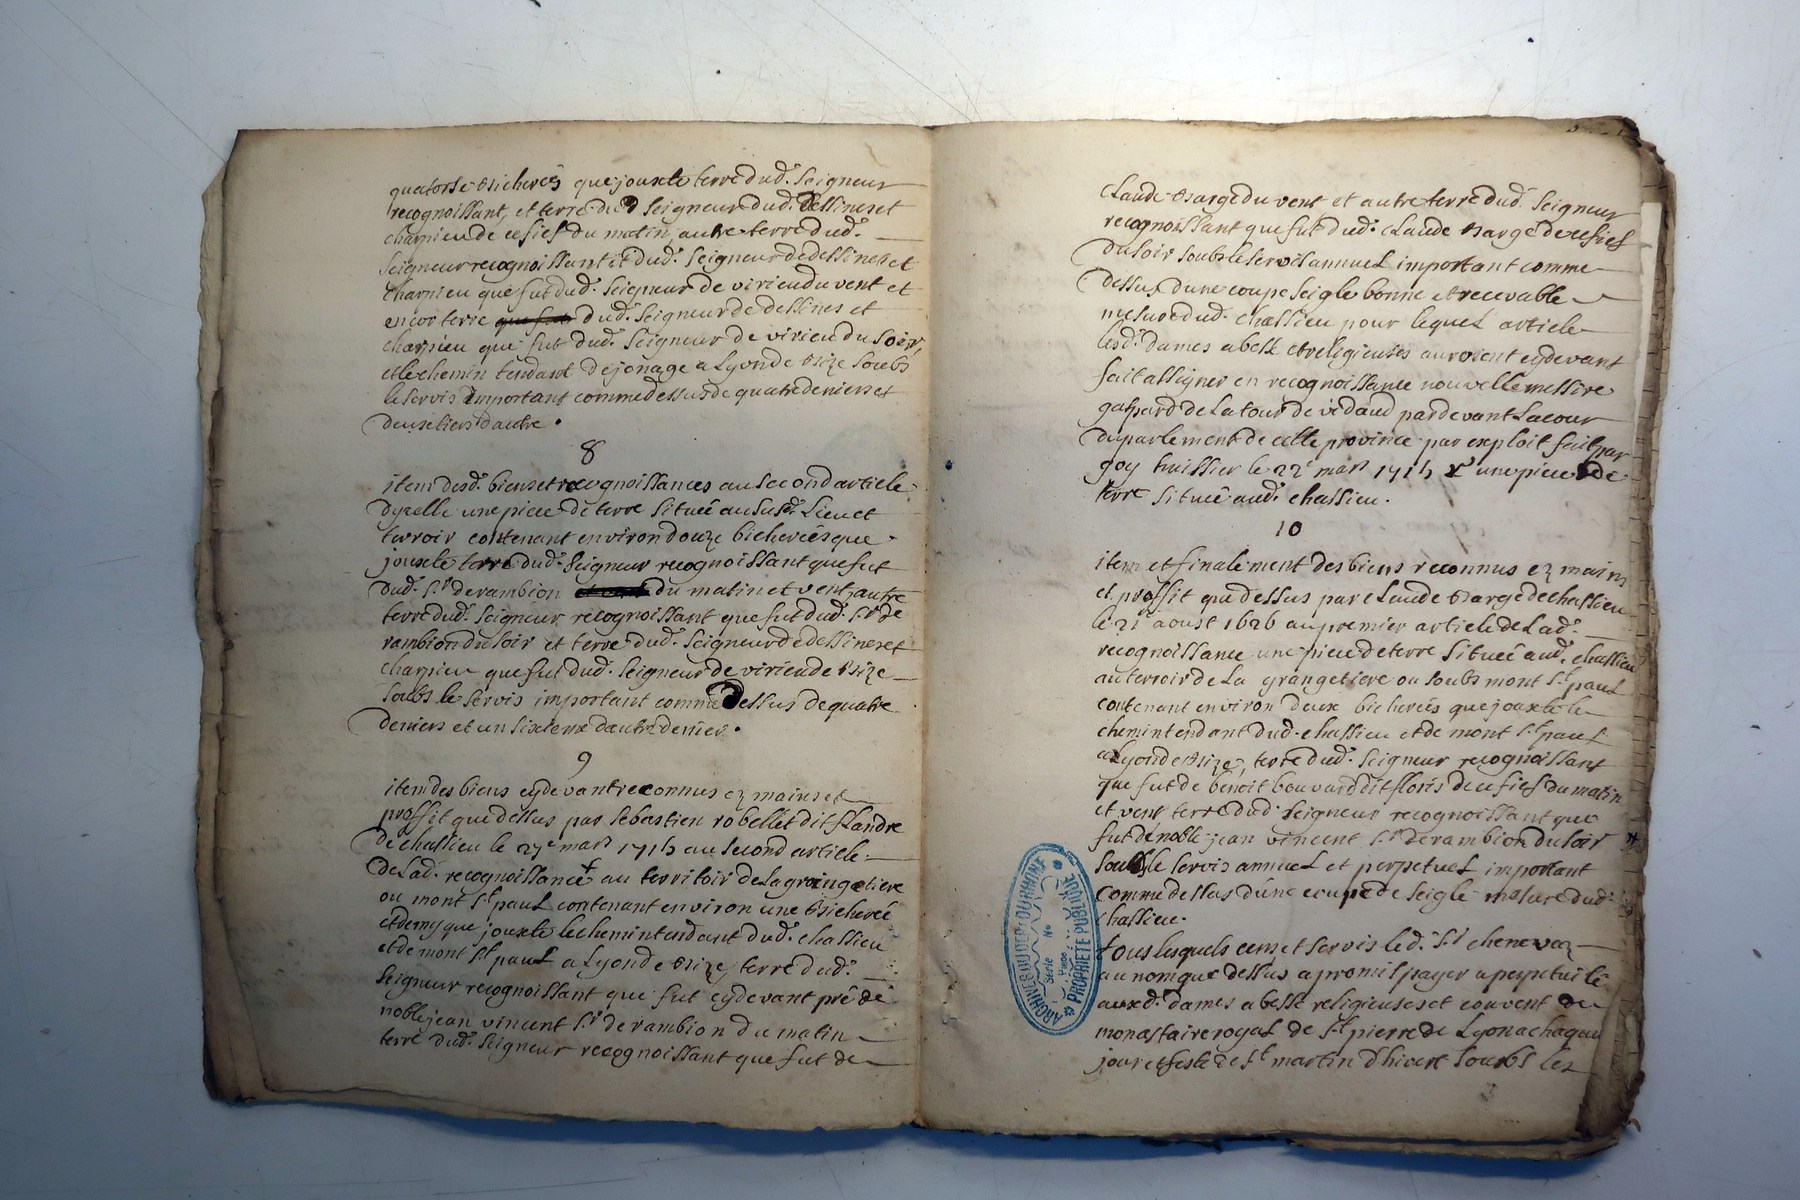 quatorse bicherées que jouxte terre dud.t Seigneur
recognoissant, et terre du d Seigneur dud. dessines et
charpieu de ce fief du matin, autre terre dud.
Seigneur recognoissant et dud. Seigneur de dessines et
charpieu que fut dud. Seigneur de virieu du vent et
encor terre dud. Seigneur de dessines et
charpieu que fut dud. Seigneur de virieu du soir,
et le chemin tendant de jonage a Lyon de bize soubs
le servis important comme dessus de quatre deniers et
deux tiers d'autre.
8
item desd. biens et recognoissances au second article
dycelle une piece de terre située au susd. Lieu et
terroir contenant environ douze bicherées que
jouxte terre dud. Seigneur recognoissant que fut
dud. S.r de rambion du matin et vent, autre
terre dud. Seigneur recognoissant que fut dud. S.r de
rambion du soir et terre dud. Seigneur de dessines et
charpieu que fut dud. Seigneur de virieu de bize
soubs le servis important comme dessus de quatre
deniers et un sixieme d'autre denier.
9
item des biens cydevant reconnus ez mains et
proffit que dessus par Sebastien robellet dit flandre
de chassieu le 27e mars 1715 au second article
de lad. recognoissance + au territoir de La grangetiere
ou mont S.t paul contenant environ une bicherée
et demy que jouxte le chemin tendant dud. chassieu
et de mont S.t paul a Lyon de bize, terre dud.
Seigneur recognoissant que fut cydevant pré de
noble jean vincent S.r de rambion du matin
terre dud. Seigneur recognoissant que fut de
Claude barge du vent et autre terre dud. Seigneur
recognoissant que fut dud. Claude barge de ce fief
du soir soubs le servis annuel important comme
dessus d'une coupe seigle bonne et recevable
mesure dud. chassieu pour lequel article
lesd. dames abesse et religieuses auroient cydevant
fait assigner en recognoissance nouvelle messire
gaspard de La tour de vidaud pardevant La cour
du parlement de cette province par exploit fait par
goy huissier le 22e mars 1715 + une piece de
terre située aud. chassieu.
10
item et finalement des biens reconnus ez mains
et proffit que dessus par Claude barge de chassieu
le 21 aoust 1626 au premier article de Lad.
recognoissance une piece de terre située aud. chassieu
au terroir de La grangetiere ou soubs mont S.t paul
contenant environ deux bicherées que jouxte le
chemin tendant dud. chassieu et de mont S.t paul
a Lyon de bize, terre dud. Seigneur recognoissant
que fut de benoit bouvard dit floris de ce fief du matin
et vent terre dud. Seigneur recognoissant que
fut de noble jean vincent S.r de rambion du soir
soubs le servis annuel et perpetuel important
comme dessus d'une coupe de seigle mesure dud.
chassieu.
tous lesquels cens et servis led. S.r chenevaz
au nom que dessus a promis payer a perpetuité
auxd. dames abesse religieuses et couvent du
monastaire royal de S.t pierre de Lyon a chaque
jour et feste de S.t martin d'hivert soubs les
ARCHIVES DU DEP.t DU RHÔNE
Série
No
Pièce
PROPRIÉTÉ PUBLIQUE